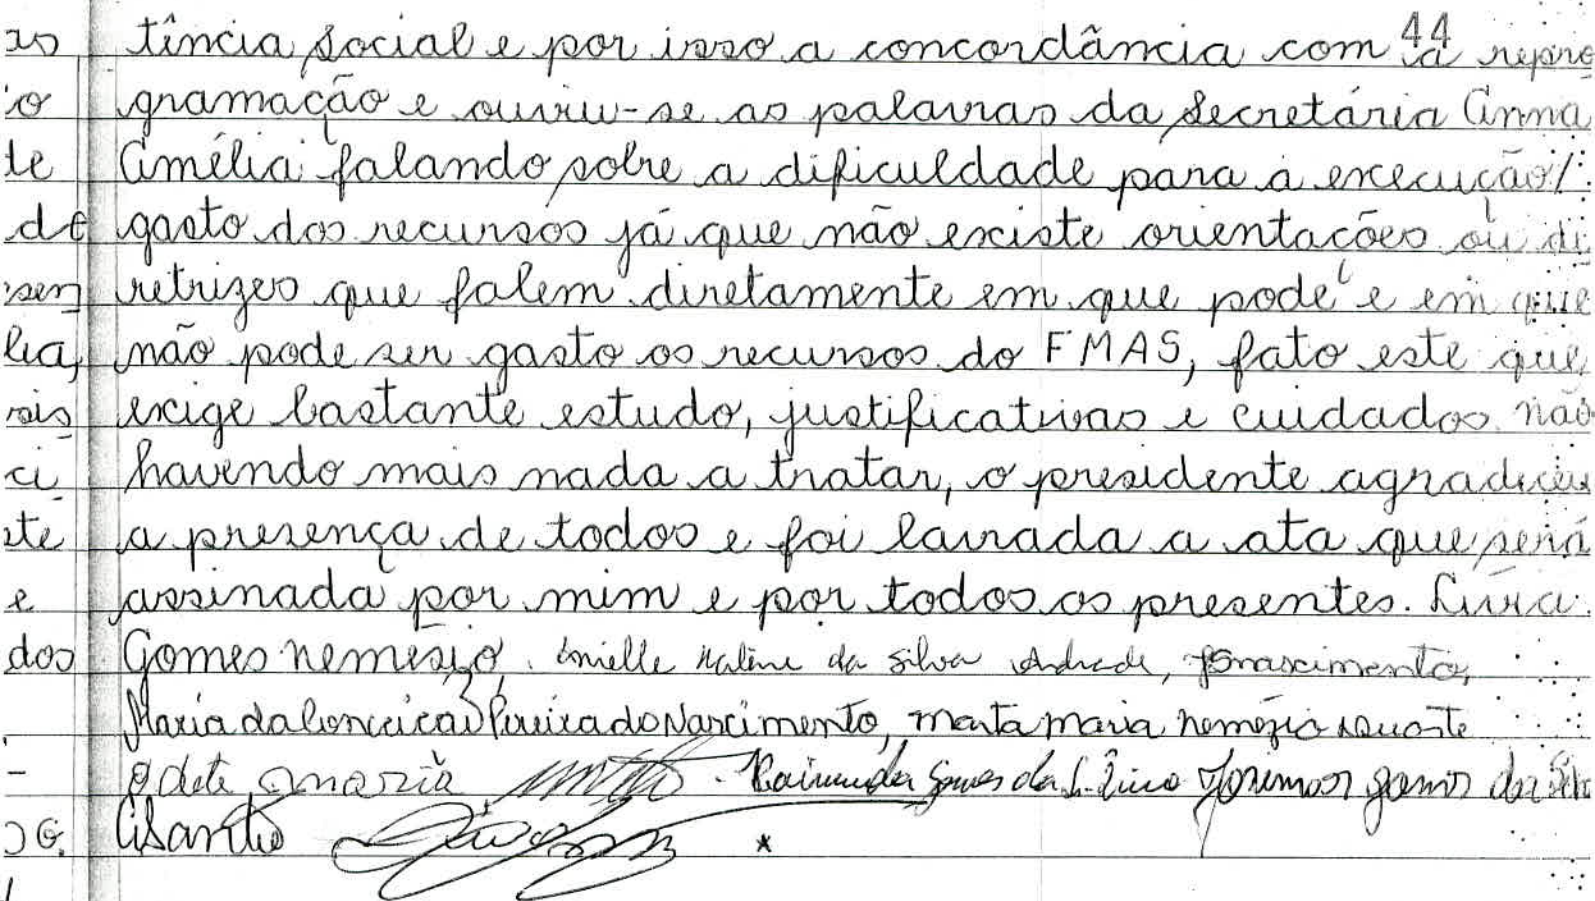 44
tência social e por isso a concordância com a repro
gramação e ouviu-se as palavras da Secretária Anna
Amélia falando sobre a dificuldade para a execução/
gasto dos recursos já que não existe orientações ou di
retrizes que falem diretamente em que pode e em que
não pode ser gasto os recursos do FMAS, fato este que
exige bastante estudo, justificativas e cuidados. Não
havendo mais nada a tratar, o presidente agradeceu
a presença de todos e foi lavrada a ata que será
assinada por mim e por todos os presentes. Lívia
Gomes Nemésio, da Silva Andrade,
Maria da Conceição Pereira do Nascimento, Marta Maria Nemézio Duarte
Odete Maria Raimunda Gomes da